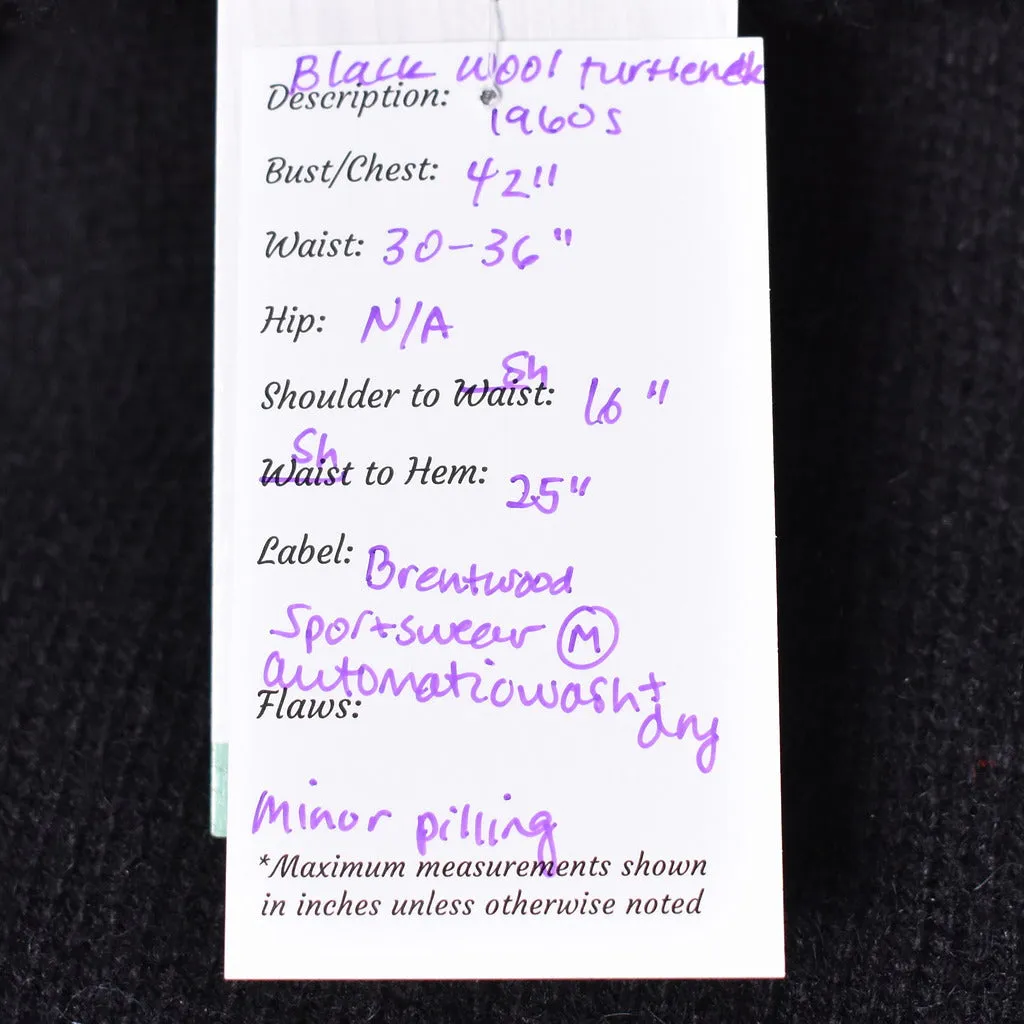 Black wool turtleneck
Description:
1960s
Bust/Chest: 42"
Waist: 30-36"
Hip: N/A
Sh
Shoulder to Waist: 16"
Sh
Waist to Hem: 25"
Label: Brentwood
Sportswear M
automatic wash +
Flaws:
dry
Minor pilling
*Maximum measurements shown
in inches unless otherwise noted